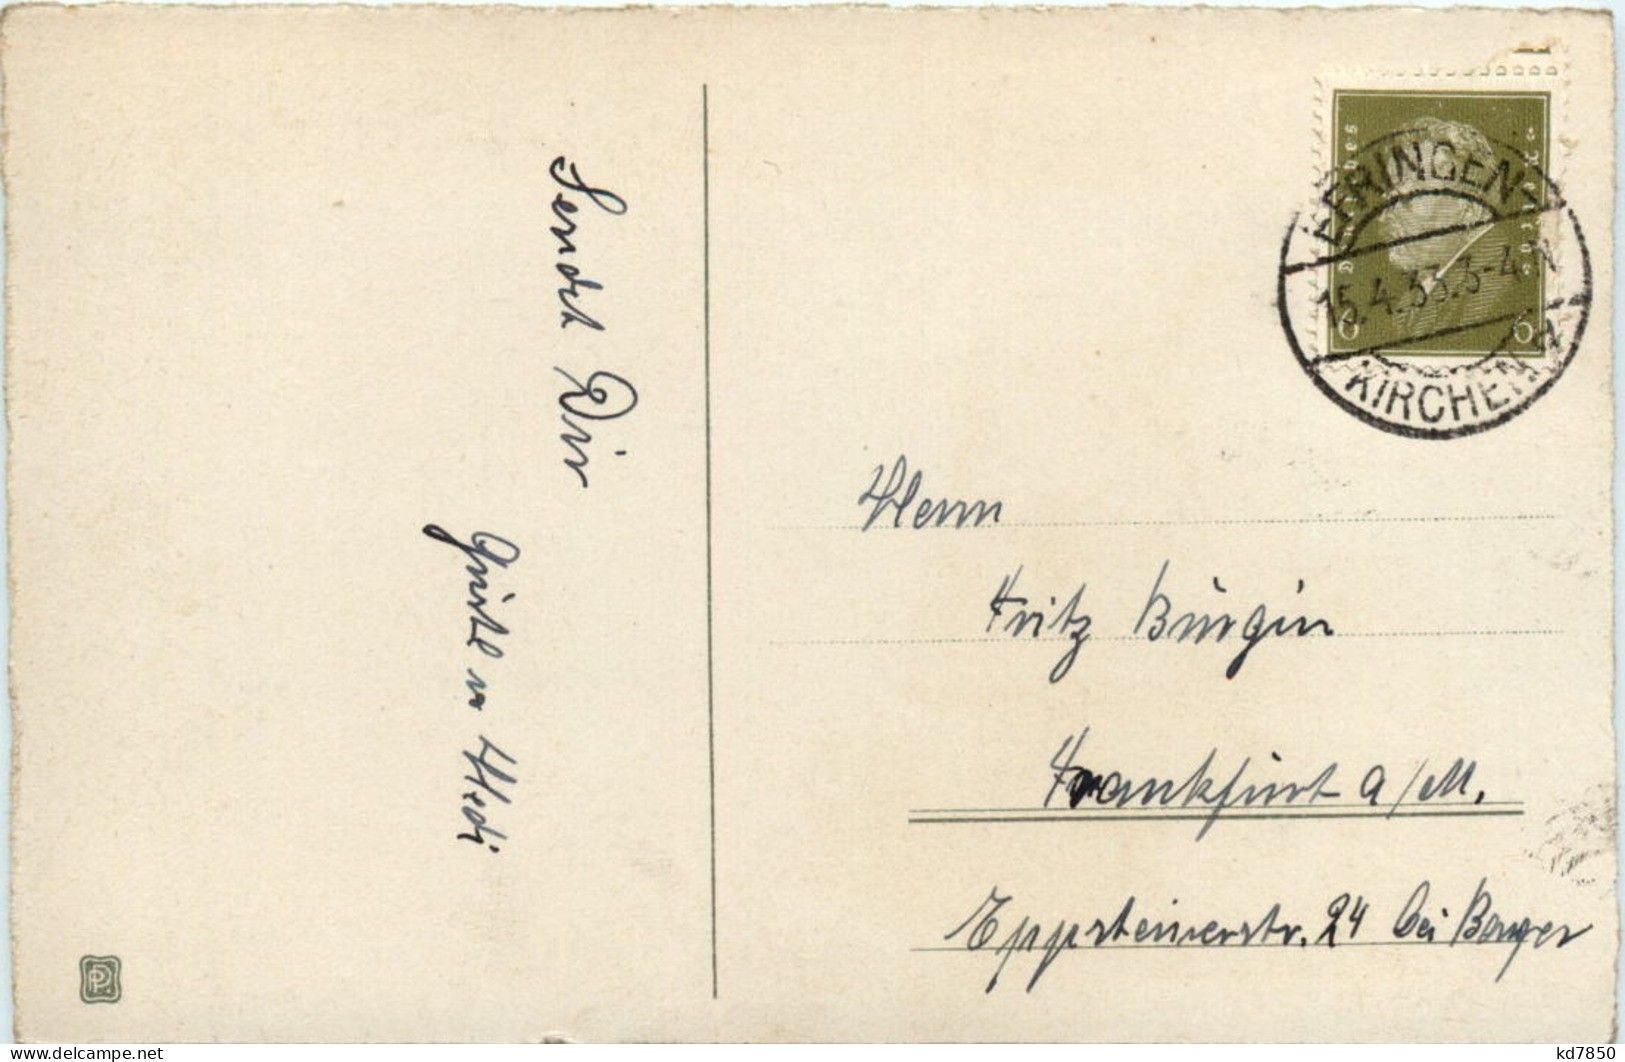 Sendet Dir
Gustel u Hedi
EFRINGEN-
15.4.33.3-4 N
KIRCHEN
Deutsches
Reich
6 6
Herrn
Fritz Bürgin
Frankfurt a/M.
Eppsteinerstr. 24 bei
PP
delcampe.net
kd7850